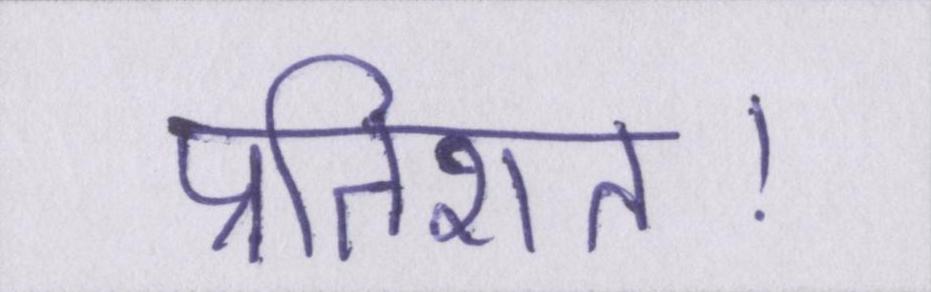 प्रतिशत!